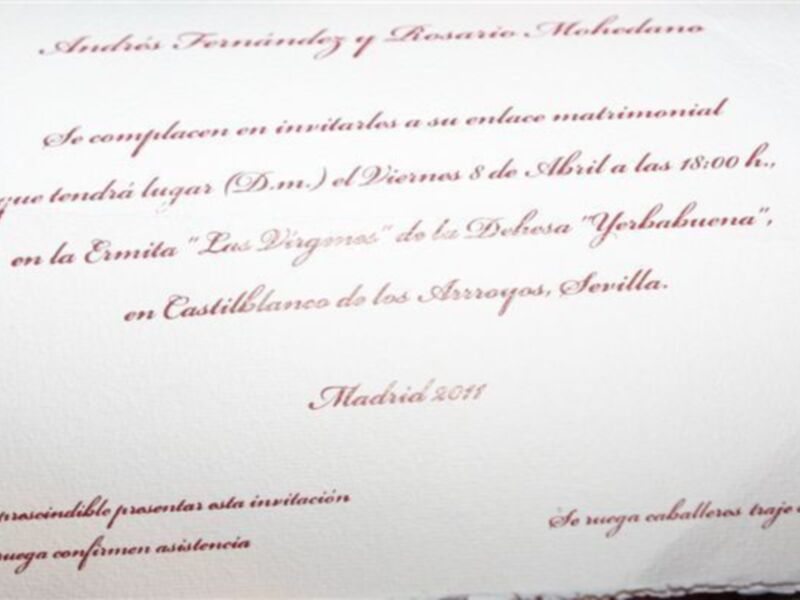 Andrés Fernández y Rosario Mohedano
Se complacen en invitarles a su enlace matrimonial
que tendrá lugar (D.m.) el Viernes 8 de Abril a las 18:00 h.,
en la Ermita "Las Vírgenes" de la Dehesa "Yerbabuena",
en Castilblanco de los Arrroyos, Sevilla.
Madrid 2011
prescindible presentar esta invitación
ruega confirmen asistencia
Se ruega caballeros traje